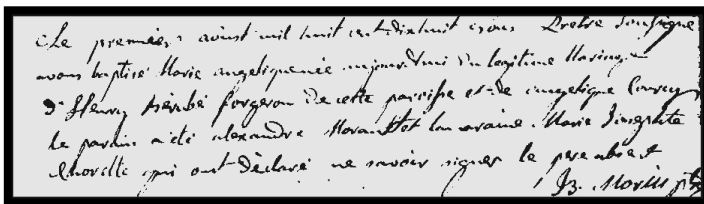 Le premier aoust mil huit cent dixhuit nous Prêtre Soussigné
avons baptisé Marie angelique née aujourdhui du legitime Mariage
d'Henry forgeron de cette paroisse et de angelique
le parain a été alexandre Morand et la maraine Marie Josephte
qui ont déclaré ne savoir signer le pere absent